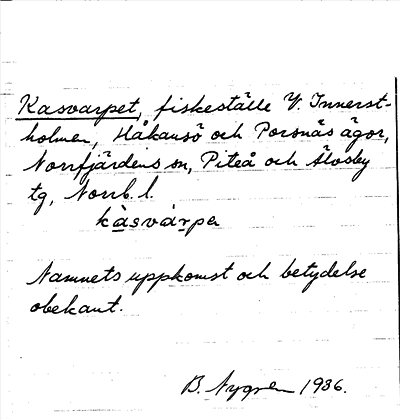 Kasvarpet, fiskeställe V. Innerst-
holmen, Håkansö och Porsnäs ägor,
Norrfjärdens sn, Piteå och Älvsby
tg, Norrb. l.
kàsvárpe
Namnets uppkomst och betydelse
obekant.
B. Nygren 1936.